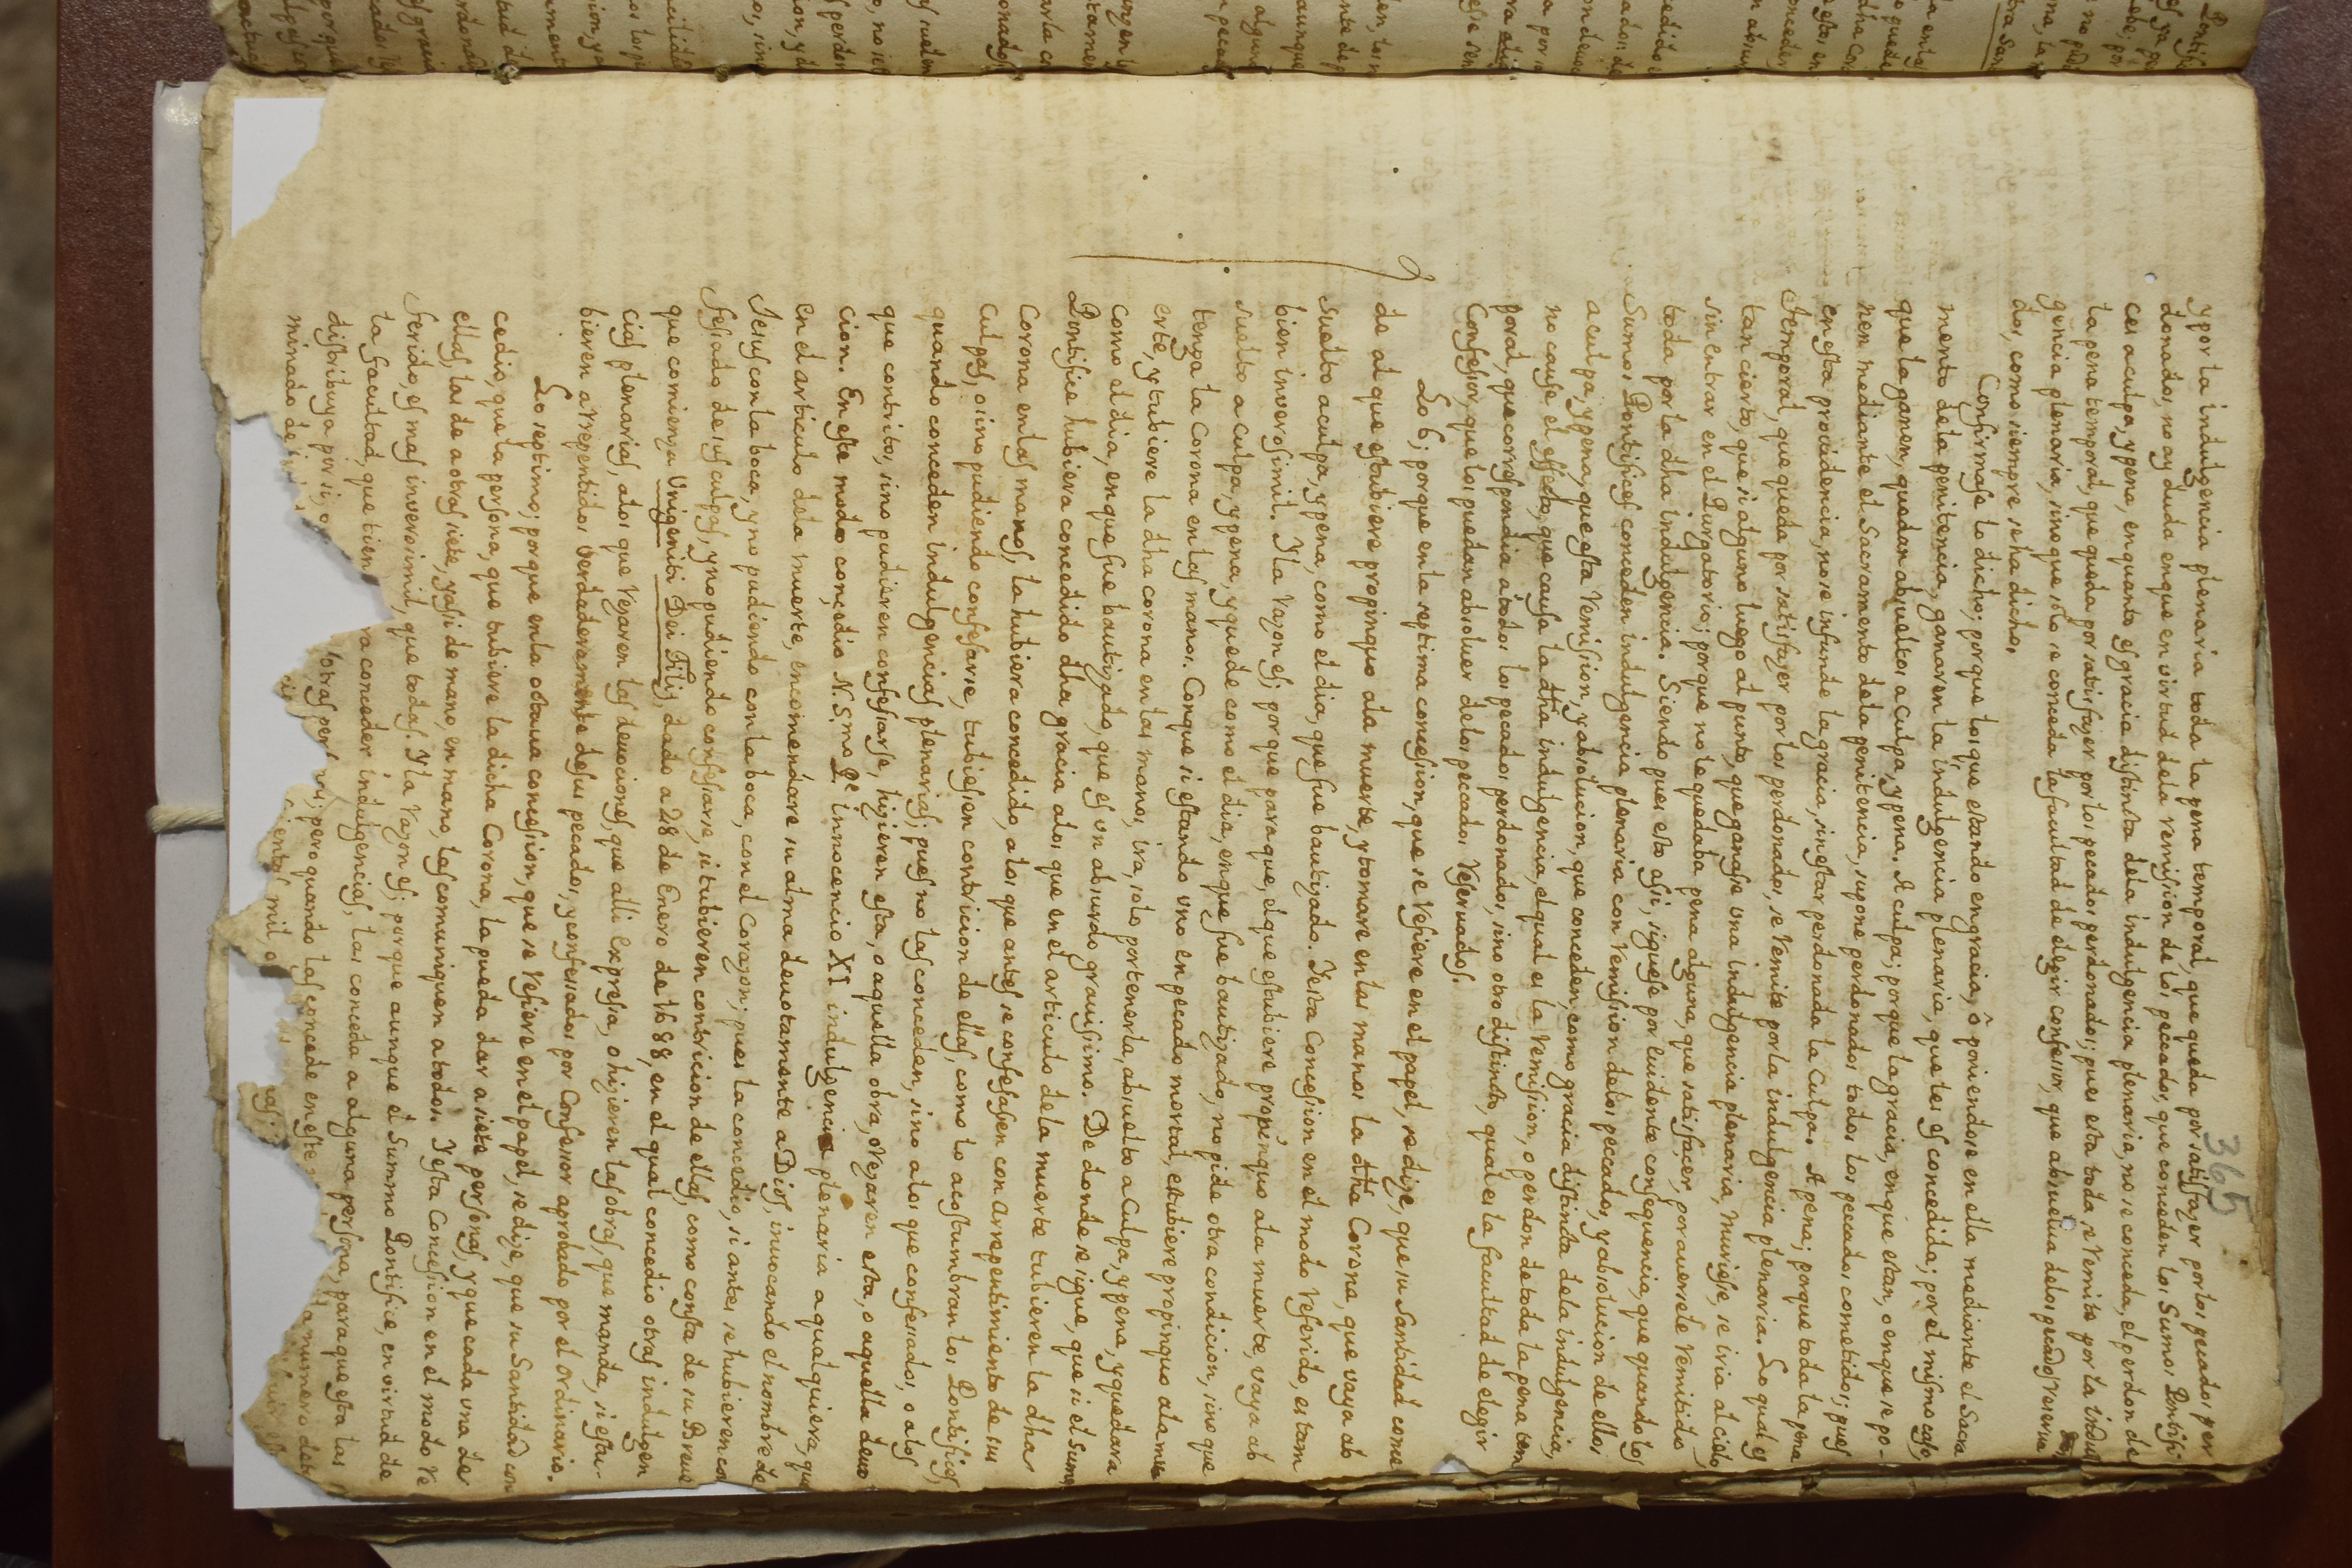 365
y por la indulgencia plenaria toda la pena temporal, que queda por satisfazer por los pecados per
donados, no ay duda en que en virtud dela remision de los peccados, que conceden los Sumos Pontifi
ces a culpa, y pena, en quanto es gracia distinta dela indulgencia plenaria, no se conceda, el perdon de
la pena temporal, que queda por satisfazer por los pecados perdonados; pues esta toda se remite por la indul
gencia plenaria, sino que solo se conceda la facultad de elegir confessor, que absuelva delos pecados reserva
dos, como siempre se ha dicho.
Confirmase lo dicho; porque los que estando en gracia, ô poniendose en ella mediante el Sacra
mento dela penitencia, ganaren la indulgencia plenaria, que les es concedida; por el mismo caso,
que la ganen, quedan absueltos a culpa, y pena. A culpa; porque la gracia, en que estan, o en que se po-
nen mediante el Sacramento dela penitencia, supone perdonados todos los peccados cometidos; pues
en esta providencia, no se infunde la gracia, sin estar perdonada la culpa. A pena; porque toda la pena
temporal, que queda por satisfazer por los perdonados, se remite por la indulgencia plenaria. Lo qual es
tan cierto, que si alguno luego al punto, que ganasse una indulgencia plenaria, muriesse, se iria al cielo
sin entrar en el Purgatorio; porque no le quedaba pena alguna, que satisfacer, por aversele remitido
toda por la dha indulgencia. Siendo pues esto assi, siguese por euidente consequencia, que quando los
Sumos Pontifices conceden indulgencia plenaria con remission delos peccados, y absolucion de ellos
a culpa, y pena, que esta remission, y absolucion, que conceden, como gracia distinta dela indulgencia,
no cause el effecto, que causa la dha indulgencia, el qual es la remission, o perdon de toda la pena tem
poral, que correspondia a todos los pecados perdonados, sino otro distinto, qual es la facultad de elegir
Confessor, que los puedan absolver delos peccados reservados.
Lo 6; porque en la septima concesion, que se refiere en el papel, se dize, que su Santidad conce
de al que estubiere propinquo ala muerte, y tomare en las manos la dha Corona, que vaya ab
suelto a culpa, y pena, como el dia, que fue bautizado. Y esta Concession en el modo referido, es tam
bien inverosimil. Y la razon es; porque para que, el que estubiere propinquo ala muerte, vaya ab
suelto a culpa, y pena, y quede como el dia, en que fue bautizado, no pide otra condicion, sino que
tenga la Corona en las manos. Con que si estando uno en pecado mortal, estubiere propinquo ala mu
erte, y tubiere la dha corona en las manos, ira, solo por tenerla, absuelto a culpa, y pena, y quedara
como el dia, en que fue bautizado, que es un absurdo gravissimo. De donde se sigue, que si el Sumo
Pontifice hubiera concedido dha gracia alos que en el articulo dela muerte tubieren la dha
Corona en las manos, la hubiera concedido, alos que antes se confesassen con arrepentimiento de sus
culpas, o sino pudiendo confesarse, tubiessen contricion de ellas, como lo acostumbran los Pontifices
quando conceden indulgencias plenarias; pues no las conceden, sino alos que confesados, o alos
que contritos, sino pudieren confesarse, hizieren esta, o aquella obra, o rezaren esta, o aquella devo
cion. En este modo concedio N. S.mo P.e innocencio XI indulgencia plenaria a qualquiera, que
en el articulo dela muerte, encomendare su alma devotamente a Dios, invocando el nombre de
Jesus con la boca, y no pudiendo con la boca, con el Corazon; pues la concedio, si antes se hubieren con
fesado de sus culpas, y no pudiendo confesarse, si tubieren contricion de ellas, como consta de su Breve
que comienza Unigeniti Dei Filij, dado a 28 de Enero de 1688, en el qual concedio otras indulgen
cias plenarias, alos que rezaren las devociones, que alli expressa, o hizieren las obras, que manda, si estu-
bieren arrepentidos verdaderamente de sus pecados, y confesados por Confessor aprobado por el Ordinario.
Lo septimo; porque en la octava concesion, que se refiere en el papel, se dize, que su Santidad con
cedio, que la persona, que tubiere la dicha Corona, la pueda dar a siete personas, y que cada una de
ellas, las de a otras siete, y assi de mano, en mano, las comuniquen a todos. Y esta Concession en el modo re
ferido, es mas inverosimil, que todas. Y la razon es; porque aunque el Summo Pontifice, en virtud de
la facultad, que tien ra conceder indulgencias, las conceda a alguna persona, para que esta las
distribuya por si, o otras pers ; pero quando las concede en este numero dete
minado de ientas mil, o